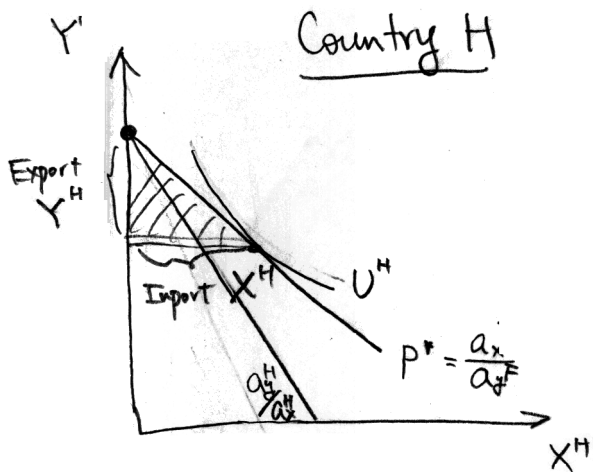 Y'
Country H
Export
Y^H
Import X^H
U^H
P* = a_x / a_y^F
a_y^H / a_x^H
X^H